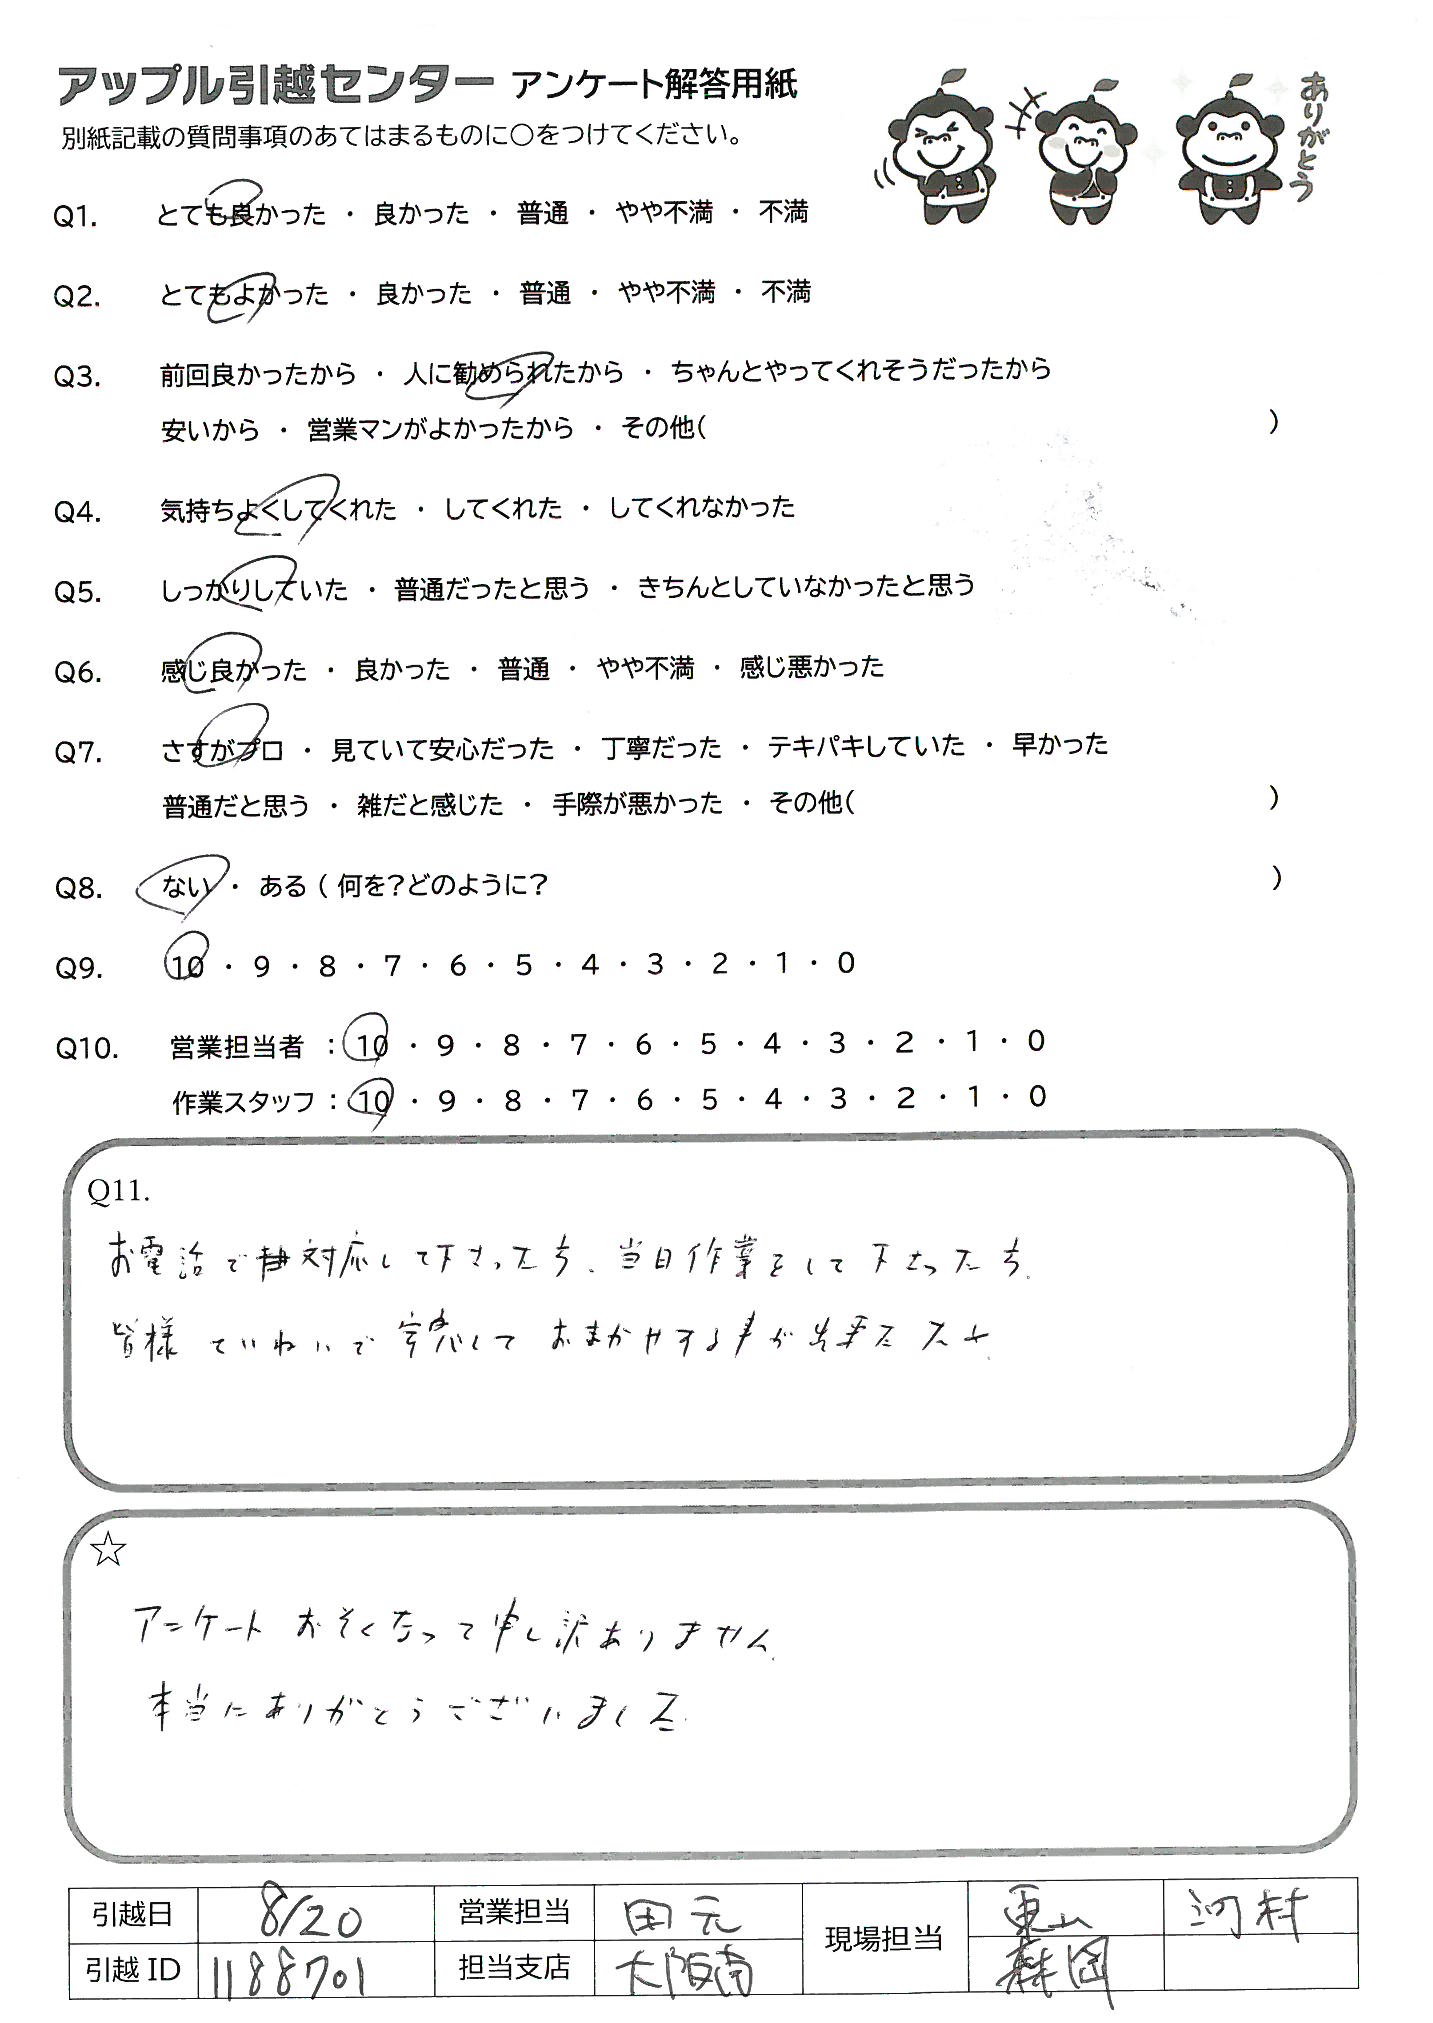 アップル引越センター アンケート解答用紙
別紙記載の質問事項のあてはまるものに○をつけてください。
ありがとう
Q1. とても良かった ・ 良かった ・ 普通 ・ やや不満 ・ 不満
Q2. とてもよかった ・ 良かった ・ 普通 ・ やや不満 ・ 不満
Q3. 前回良かったから ・ 人に勧められたから ・ ちゃんとやってくれそうだったから
安いから ・ 営業マンがよかったから ・ その他( )
Q4. 気持ちよくしてくれた ・ してくれた ・ してくれなかった
Q5. しっかりしていた ・ 普通だったと思う ・ きちんとしていなかったと思う
Q6. 感じ良かった ・ 良かった ・ 普通 ・ やや不満 ・ 感じ悪かった
Q7. さすがプロ ・ 見ていて安心だった ・ 丁寧だった ・ テキパキしていた ・ 早かった
普通だと思う ・ 雑だと感じた ・ 手際が悪かった ・ その他( )
Q8. ない ・ ある ( 何を?どのように? )
Q9. 10 ・ 9 ・ 8 ・ 7 ・ 6 ・ 5 ・ 4 ・ 3 ・ 2 ・ 1 ・ 0
Q10. 営業担当者 : 10 ・ 9 ・ 8 ・ 7 ・ 6 ・ 5 ・ 4 ・ 3 ・ 2 ・ 1 ・ 0
作業スタッフ : 10 ・ 9 ・ 8 ・ 7 ・ 6 ・ 5 ・ 4 ・ 3 ・ 2 ・ 1 ・ 0
Q11.
お電話で対応して下さった方、当日作業をして下さった方、
皆様ていねいで安心しておまかせする事が出来ました。
☆
アンケートおそくなって申し訳ありません。
本当にありがとうございました。
引越日 8/20 営業担当 田元 現場担当 東山 河村
引越ID 1188701 担当支店 大阪南 森岡